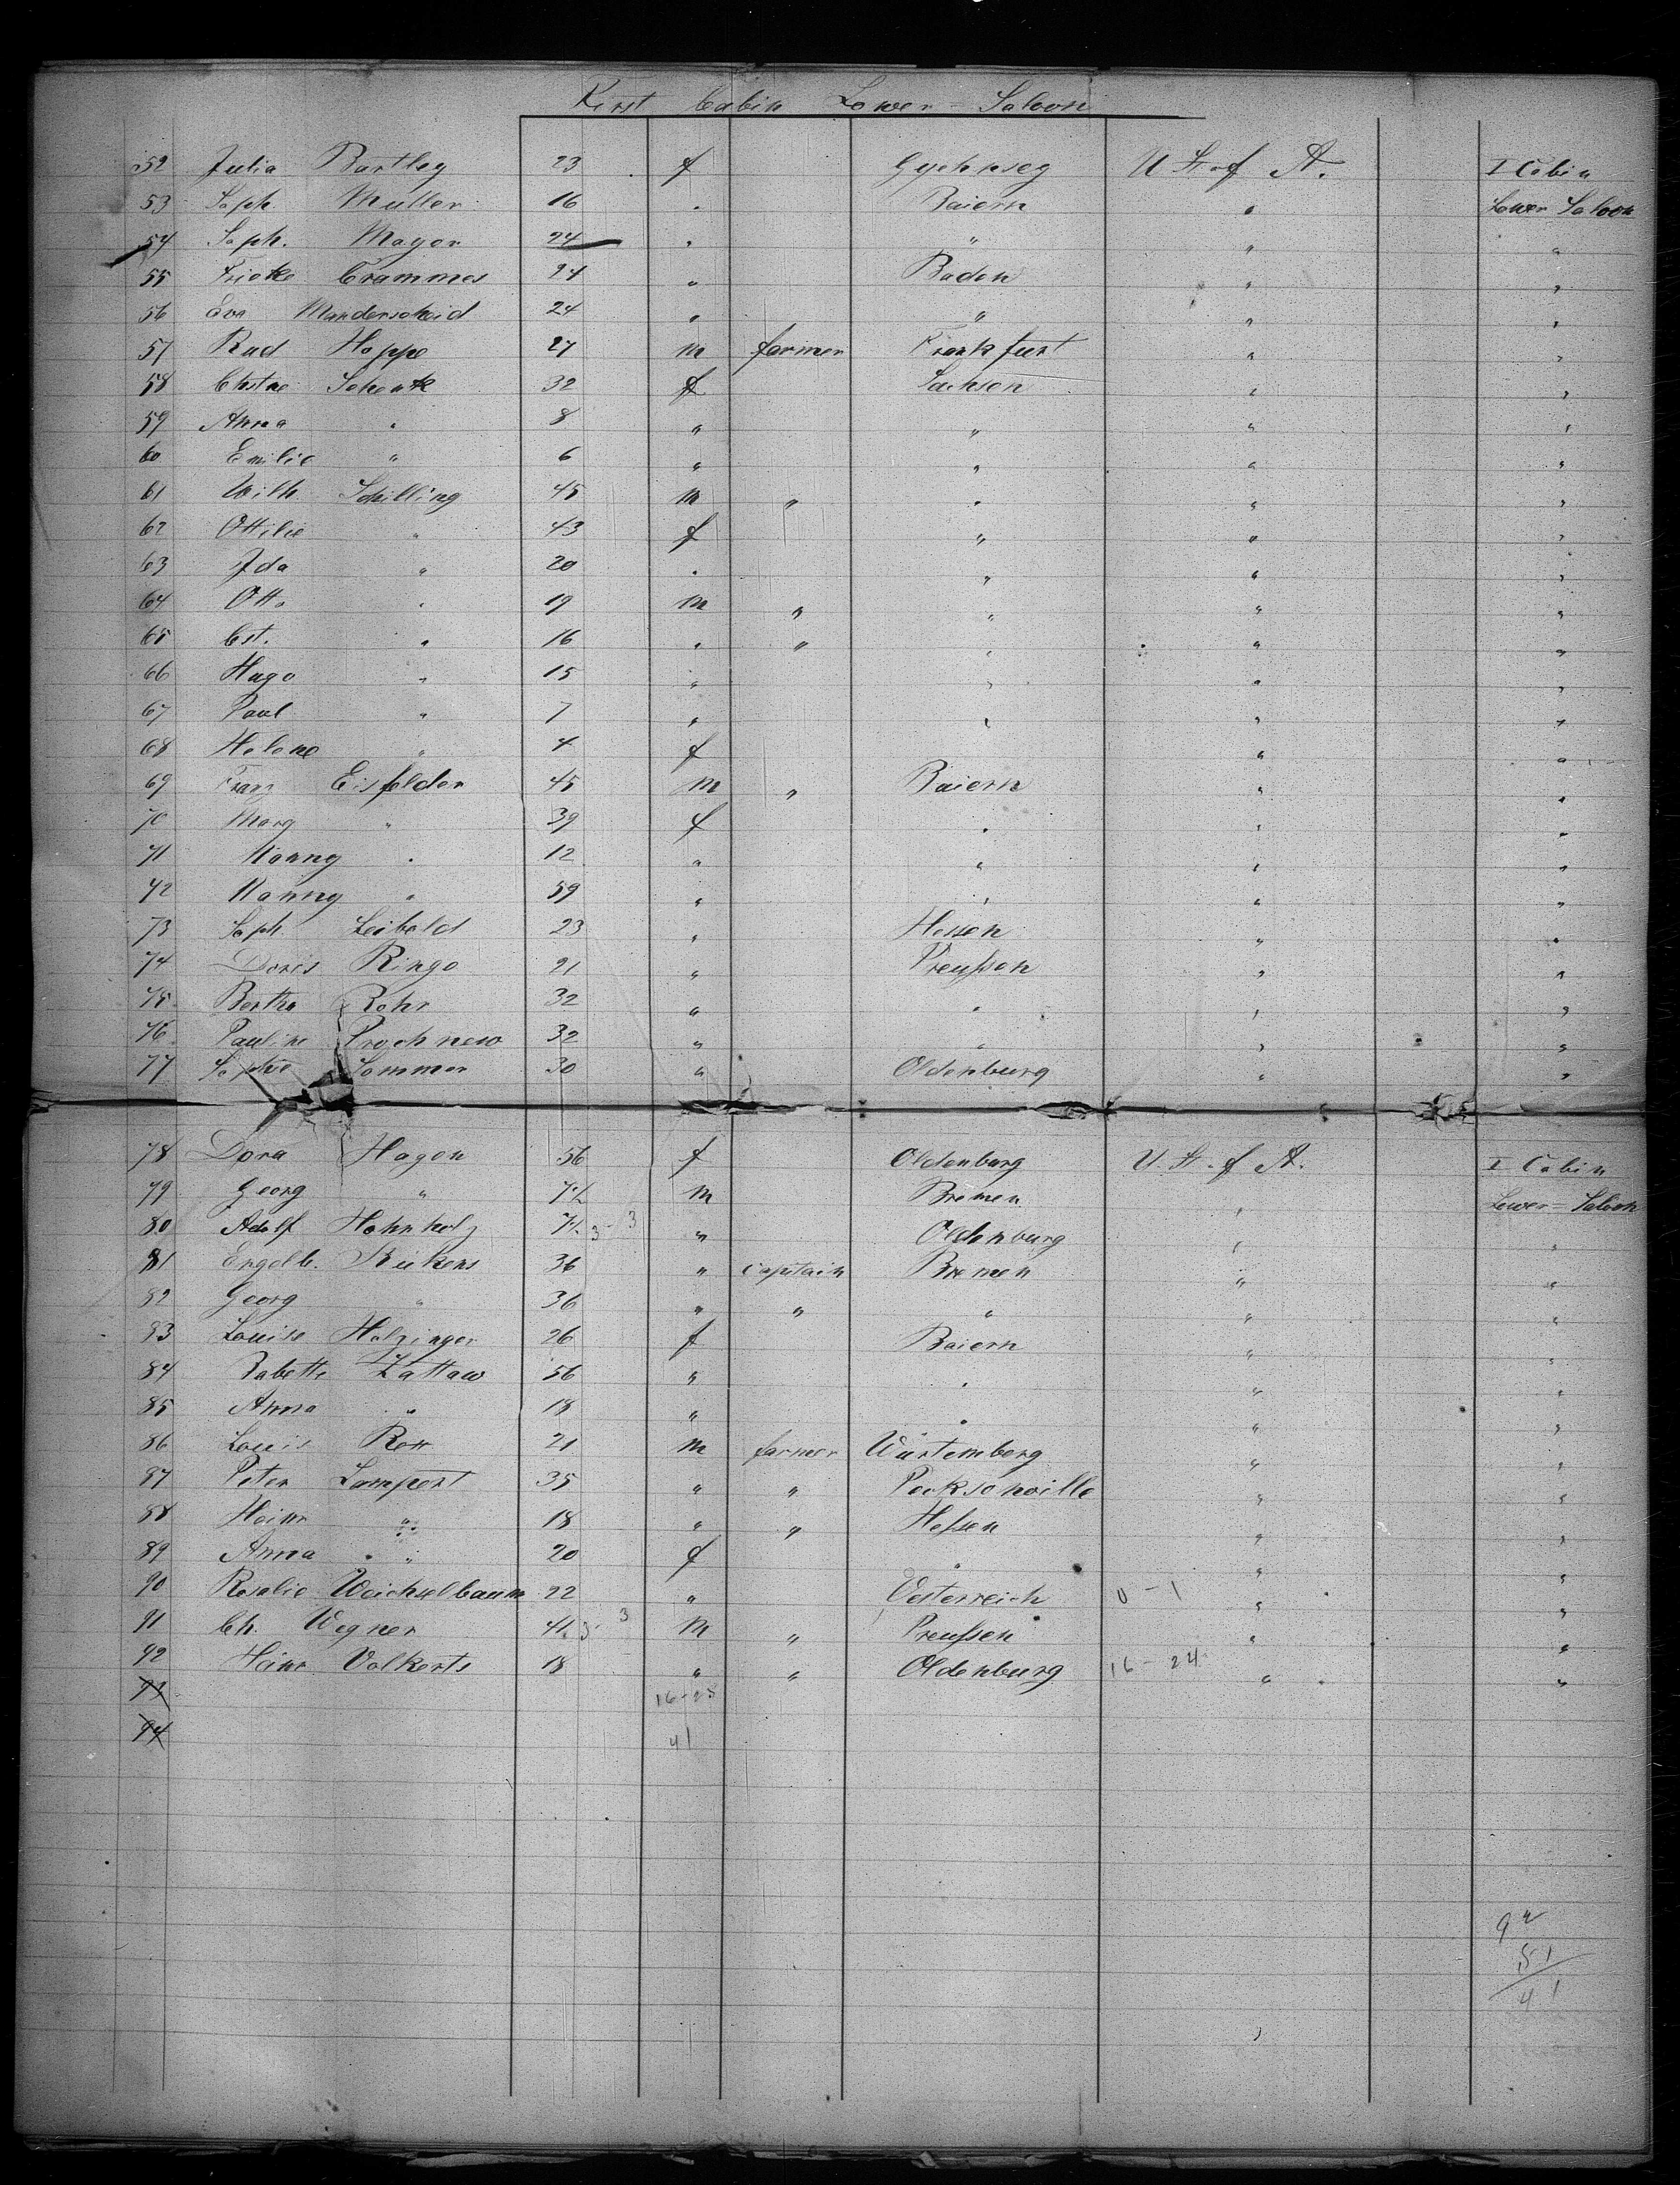 First Cabin Lower-Saloon
52 Julia Bartley 23 f U St of A. I Cabin
53 Soph. Muller 16 " Baiern " Lower Saloon
54 Soph. Mayer 24 " " " "
55 Fricke Crammes 24 " Baden " "
56 Eva Manderscheid 24 " " " "
57 Rud Hoppe 27 m farmer Frankfurt " "
58 Chstne Schenk 32 f Sachsen " "
59 Anna " 8 " " " "
60 Emilie " 6 " " " "
61 Wilh Schilling 45 m " " " "
62 Ottilie " 43 f " " "
63 Ida " 20 " " " "
64 Otto " 19 m " " " "
65 Cst. " 16 " " " " "
66 Hugo " 15 " " " "
67 Paul " 7 " " " "
68 Helene " 4 f " "
69 Franz Eisfelder 45 m " Baiern " "
70 Marg " 39 f " " "
71 Nanny " 12 " " " "
72 Nanny " 59 " " " "
73 Soph Leibold 23 " Hessen " "
74 Doris Ringe 21 " Preussen " "
75 Bertha Rohr 32 " " " "
76 Pauline Prochnew 32 " " " "
77 Sophie Sommer 30 " Oldenburg " "
78 Dora Hagen 56 f Oldenburg U. St. of A. I Cabin
79 Georg " m Bremen " Lower=Saloon
80 Adolf Hohnholz 3-3 " Oldenburg " "
81 Engelb. Rickens 36 " captain Bremen " "
82 Georg " 36 " " " " "
83 Louise Holzinger 26 f Baiern " "
84 Babette Zattaw 56 " " " "
85 Anna " 18 " " " "
86 Louis Rom 21 m farmer Würtemberg " "
87 Peter Lampert 35 " " Peeksonville " "
88 Heinr " 18 " " Hessen " "
89 Anna " 20 f " " "
90 Rosalie Weichselbaum 22 " Oesterreich 0-1 " "
91 Ch. Wegner 41 3-3 m " Preussen " "
92 Heinr Volkerts 18 " " Oldenburg 16-24 " "
93 16-25
94 41
92
51
41